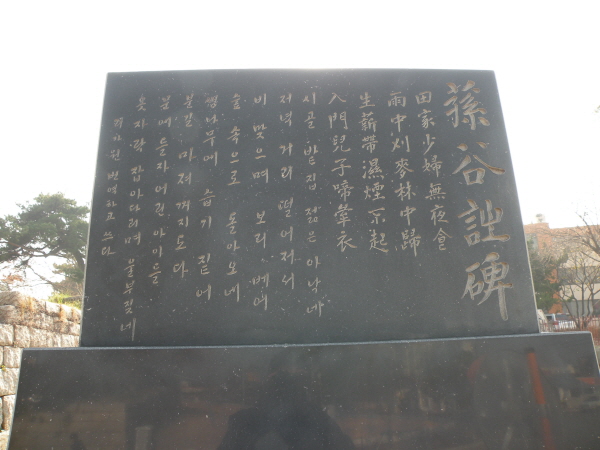 蓀谷詩碑
田家少婦無夜食
雨中刈麥林中歸
生薪帶濕煙不起
入門兒子啼牽衣
시골 밭집 젊은 아낙네
저녁 거리 떨어져서
비 맞으며 보리 베어
숲 속으로 돌아오네
생나무에 습기 짙어
불길 마져 꺼지도다
문에 들자 어린 아이들
옷자락 잡아다리며 울부짖네
번역하고 쓰다